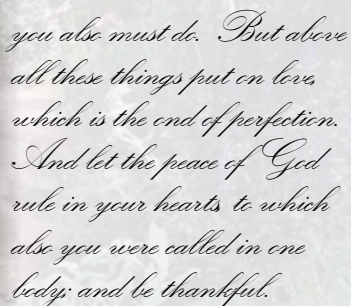 you also must do. But above
all these things put on love,
which is the ond of perfection.
And let the peace of God
rule in your hearts, to which
also you were called in one
body; and be thankful.